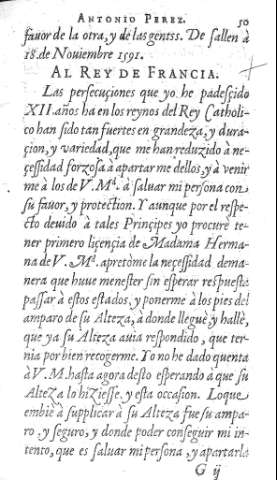 ANTONIO PEREZ. 50
fauor de la otra, y de las gentss. De sallen à
18. de Nouiembre 1591.
AL REY DE FRANCIA.
Las persecuçiones que yo he padesçido
XII. años ha en los reynos del Rey Catholi-
co han sido tan fuertes en grandeza, y dura-
çion, y variedad, que me han reduzido à ne-
çessidad forzosa à apartar me dellos, y à venir
me à los de V. Mᵈ. à saluar mi persona con
su fauor, y protection. Y aunque por el respe-
cto deuido à tales Principes yo procurè te-
ner primero liçençia de Madama Herma-
na de V. Mᵈ. apretòme la neçessidad de ma-
nera que huue menester sin esperar respuesta
passar à estos estados, y ponerme à los pies del
amparo de su Alteza, à donde lleguè y hallè,
que ya su Alteza auia respondido, que ter-
nia por bien recogerme. Yo no he dado quenta
à V. M. hasta agora desto esperando à que su
Alteza lo hiziesse, y esta occasion. Lo que
embiè à supplicar à su Alteza fue su ampa-
ro, y seguro, y donde poder conseguir mi in-
tento, que es saluar mi persona, y apartarla
G ij